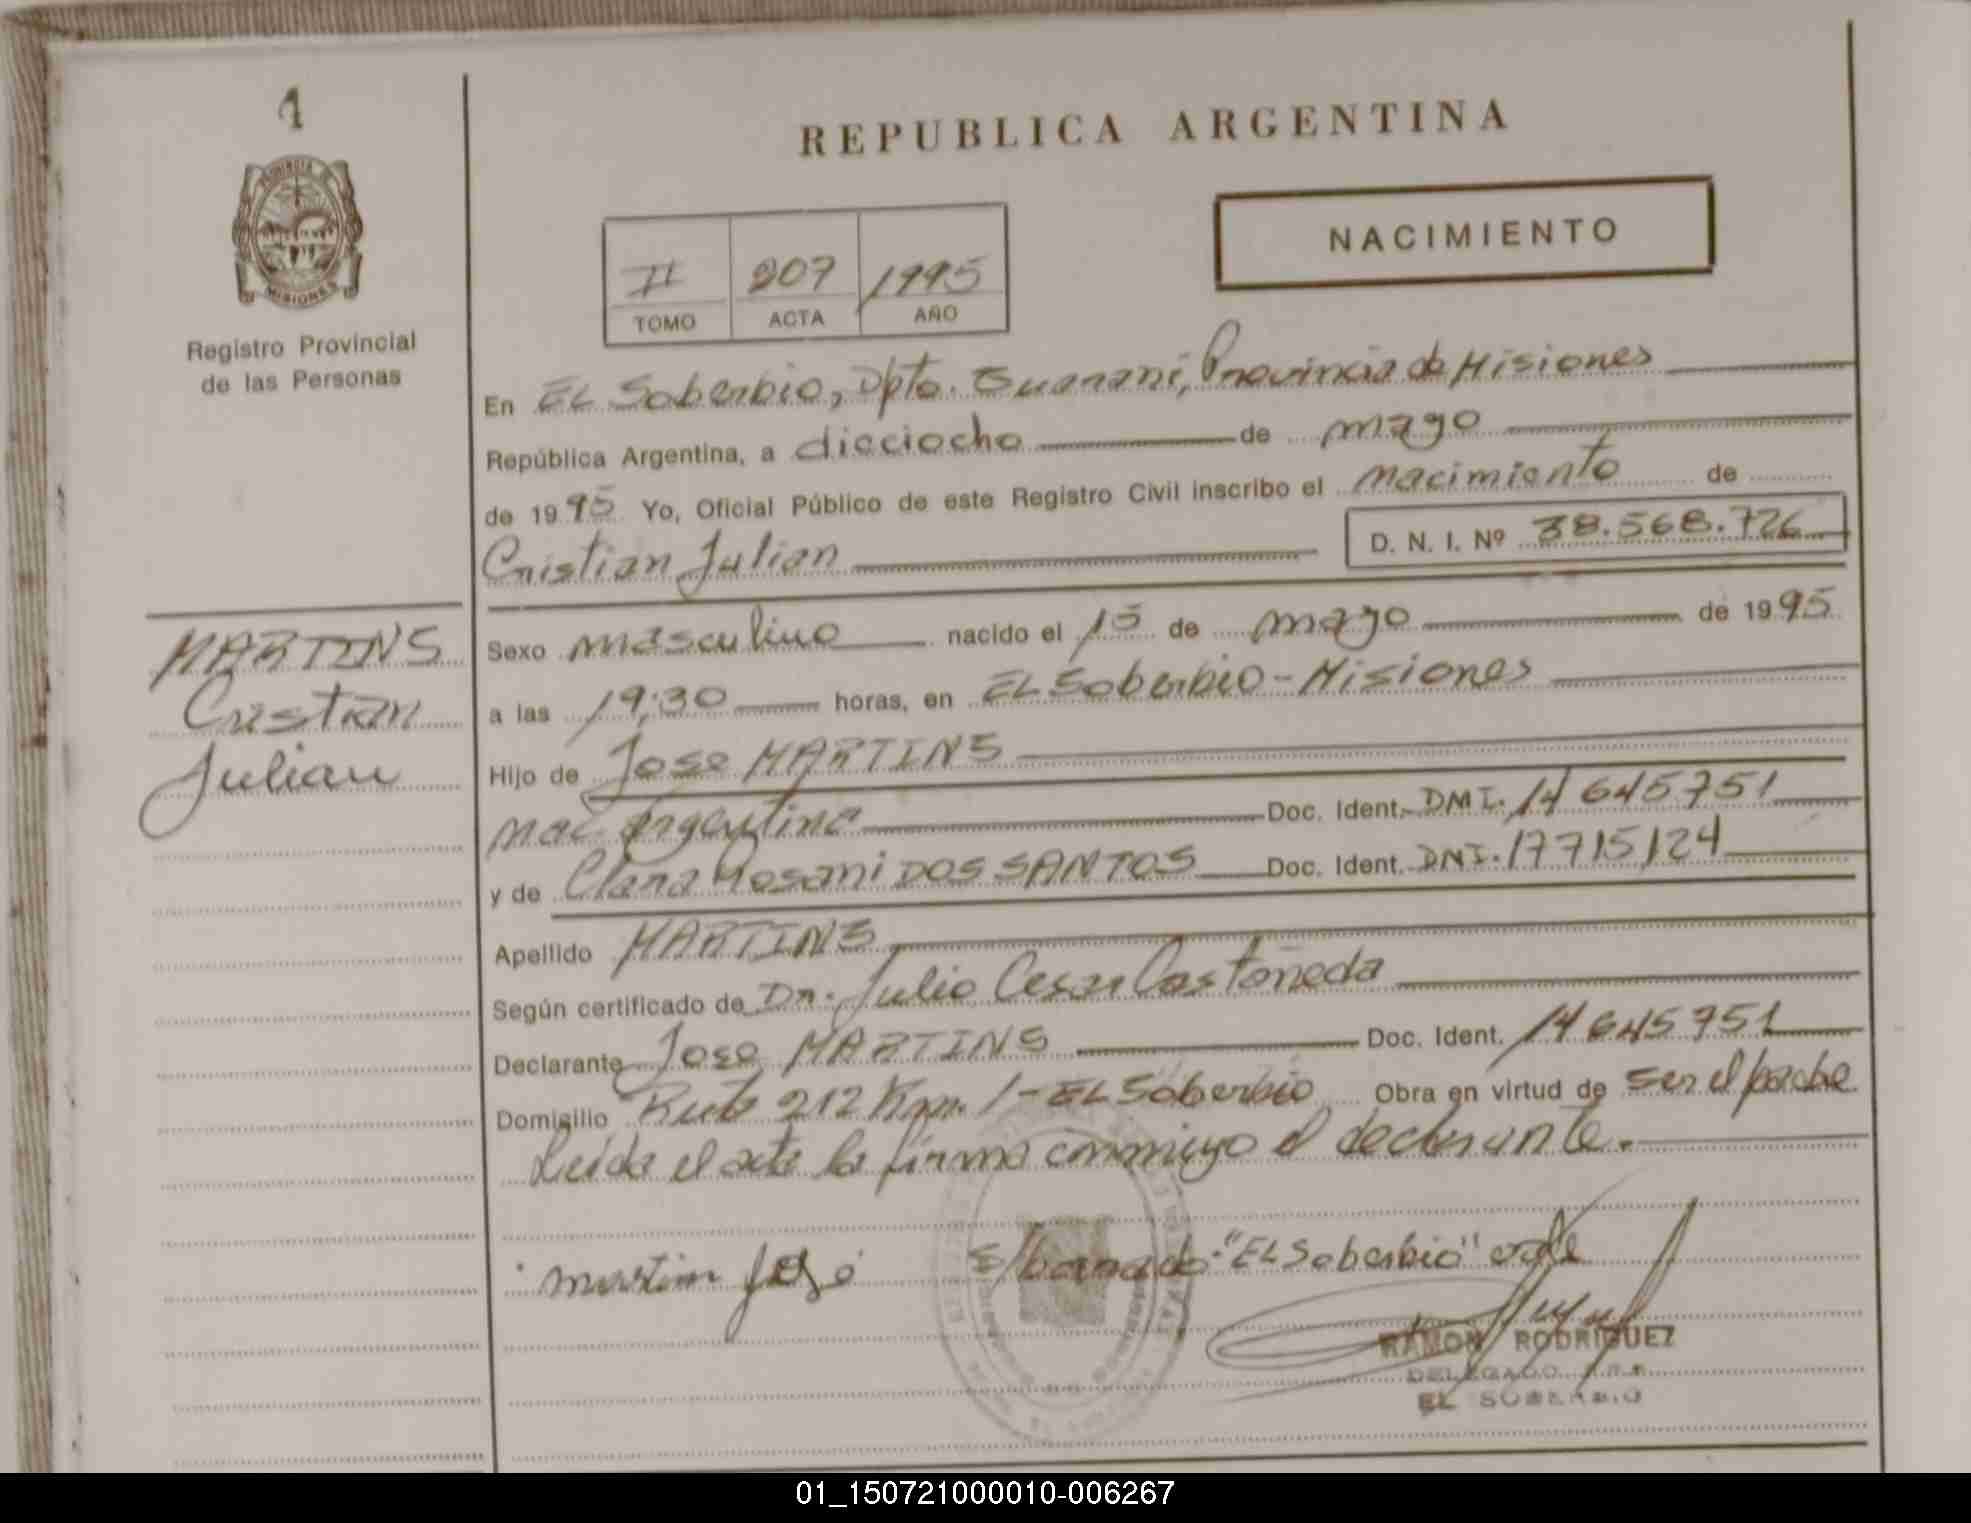 1
PROVINCIA DE
MISIONES
Registro Provincial
de las Personas
REPUBLICA ARGENTINA
NACIMIENTO
II 207 1995
TOMO ACTA AÑO
En EL Soberbio, Dpto. Guarani, Provincia de Misiones
República Argentina, a dieciocho de mayo
de 1995 Yo, Oficial Público de este Registro Civil inscribo el nacimiento de
Cristian Julian D. N. I. Nº 38.568.726
MARTINS
Cristian
Julian
Sexo masculino nacido el 15 de mayo de 1995
a las 19:30 horas, en EL Soberbio - Misiones
Hijo de Jose MARTINS
nac. Argentina Doc. Ident. DMI. 14 645751
y de Clara Rosani DOS SANTOS Doc. Ident. DNI. 17715124
Apellido MARTINS
Según certificado de Dr. Julio Cesar Castañeda
Declarante Jose MARTINS Doc. Ident. 14645751
Domicilio Ruta 212 Km. 1 - EL Soberbio Obra en virtud de ser el padre
Leida el acta la firma conmigo el declarante.
martin José S/borrado: "EL Soberbio" vale
RAMON RODRIGUEZ
DELEGADO
EL SOBERBIO
01_150721000010-006267